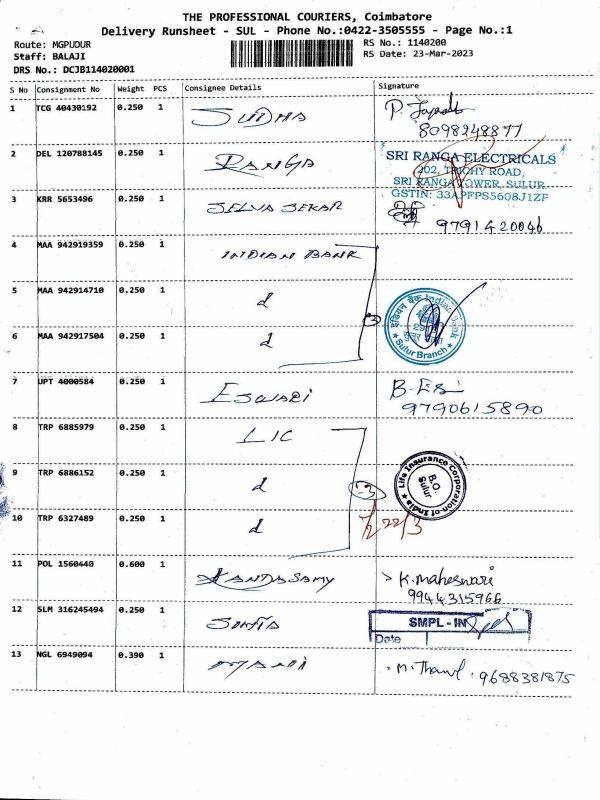 THE PROFESSIONAL COURIERS, Coimbatore
Delivery Runsheet - SUL - Phone No.:0422-3505555 - Page No.:1
Route: MGPUDUR
RS No.: 1140200
Staff: BALAJI
RS Date: 23-Mar-2023
DRS No.: DCJB114020001
S No Consignment No Weight PCS Consignee Details Signature
1 TCG 40430192 0.250 1 SUDHA P.
8098248877
2 DEL 120788145 0.250 1 RANGA SRI RANGA ELECTRICALS
202, TRICHY ROAD,
SRI RANGA TOWER, SULUR
GSTIN: 33APFPS5608J1ZF
3 KRR 5653496 0.250 1 SELVA SEKAR 9791420046
4 MAA 942919359 0.250 1 INDIAN BANK
5 MAA 942914710 0.250 1 d
3
इंडियन बैंक Indian Bank
Sulur Branch
6 MAA 942917504 0.250 1 d
7 UPT 4000584 0.250 1 ESWARI B.
9790615890
8 TRP 6885979 0.250 1 LIC
9 TRP 6886152 0.250 1 d
3
Life Insurance Corporation of India
B.O.
Sulur
10 TRP 6327489 0.250 1 d
22/3
11 POL 1560440 0.600 1 KANDASAMY K. Maheswari
9944315966
12 SLM 316245494 0.250 1 SMPL - IN
Date
13 NGL 6949094 0.390 1 MANI M. 9688381875